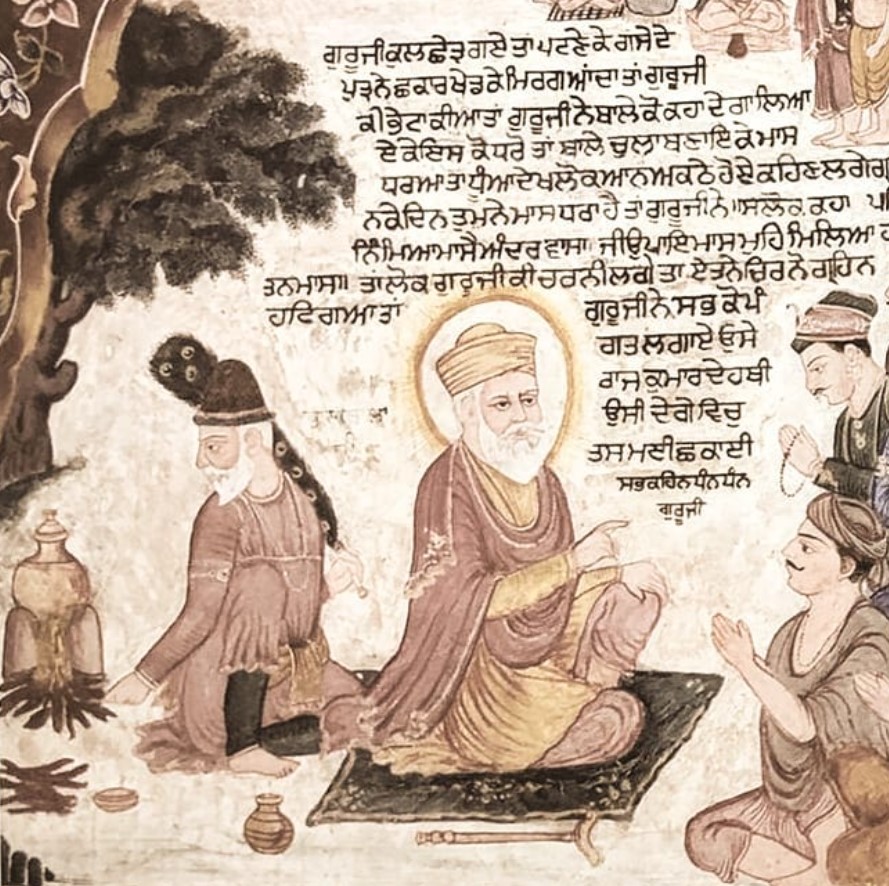 ਗੁਰੂਜੀਕਲਛੇਤ੍ਰਗਏਤਾਪਟਣੇਕੇਰਾਜੇਦੇ
ਪੁਤ੍ਰਨੇਛਕਾਰਖੇਡਕੇਮਿਰਗਆਂਦਾਤਾਂਗੁਰੂਜੀ
ਕੀਭੇਟਾਕੀਆਤਾਂ ਗੁਰੂਜੀਨੇਬਾਲੇਕੋਕਹਾ ਦੇਗਾਲਿਆ
ਏਕੇਇਸ ਕੋਧਰੋ ਤਾਂ ਬਾਲੇ ਚੁਲਾਬਣਾਇਕੇਮਾਸ
ਧਰਆਤਾਧੂੰਆਦੇਖਲੋਕਆਨਅਕਠੇਹੋਏਕਹਿਣਲਗੇ
ਨਕੇਦਿਨਤੁਮਨੇਮਾਸਧਰਾਹੈਤਾਂਗੁਰੂਜੀਨੇ॥ਸਲੋਕਕਹਾ
ਨਿੰਮਿਆਮਾਸੈਅੰਦਰਵਾਸਾ ਜੀਉਪਾਇਮਾਸਮੁਹਿਮਿਲਿਆ
ਤਨਮਾਸ॥ ਤਾਂਲੋਕ ਗੁਰੂਜੀਕੀਚਰਨੀਲਗੇ ਤਾ ਏਤਨੇਚਿਰਨੋਗ੍ਰਹਿਨ
ਹਟਿਗਆਤਾਂ ਗੁਰੂਜੀਨੇਸਭਕੋਪੰ
ਗਤਲਗਾਏ ਓਸੇ
ਰਾਜਕੁਮਾਰਦੇਹਥੀ
ਉਸੀ ਦੇਗੋਵਿਚੁ
ਤਸਮਈਛਕਾਈ
ਸਭਕਹਿਨਧੰਨਧੰਨ
ਗੁਰੂਜੀ